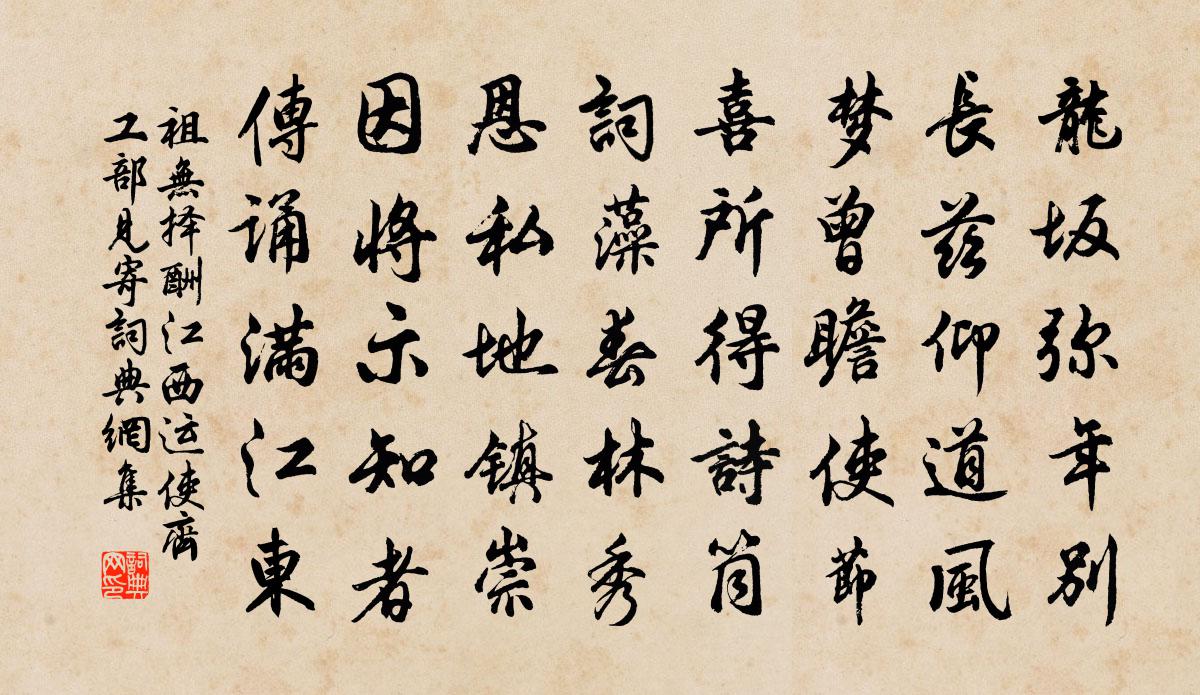 龍坂弥年別
長茲仰道風
梦曾瞻使節
喜所得詩筒
詞藻春林秀
恩私地镇崇
因将示知者
傳誦满江東
祖無择酬江西运使齊
工部見寄詞典網集
詞典
网印